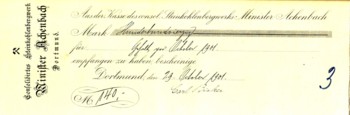 Consolidirtes Steinkohlenbergwerk
Minister Achenbach
Dortmund.
Aus der Kasse des consol. Steinkohlenbergwerks Minister Achenbach
Mark
für pro Oktober 1901
empfangen zu haben bescheinigt
Dortmund, den 29. Oktober 1901.
M. 140,-
3